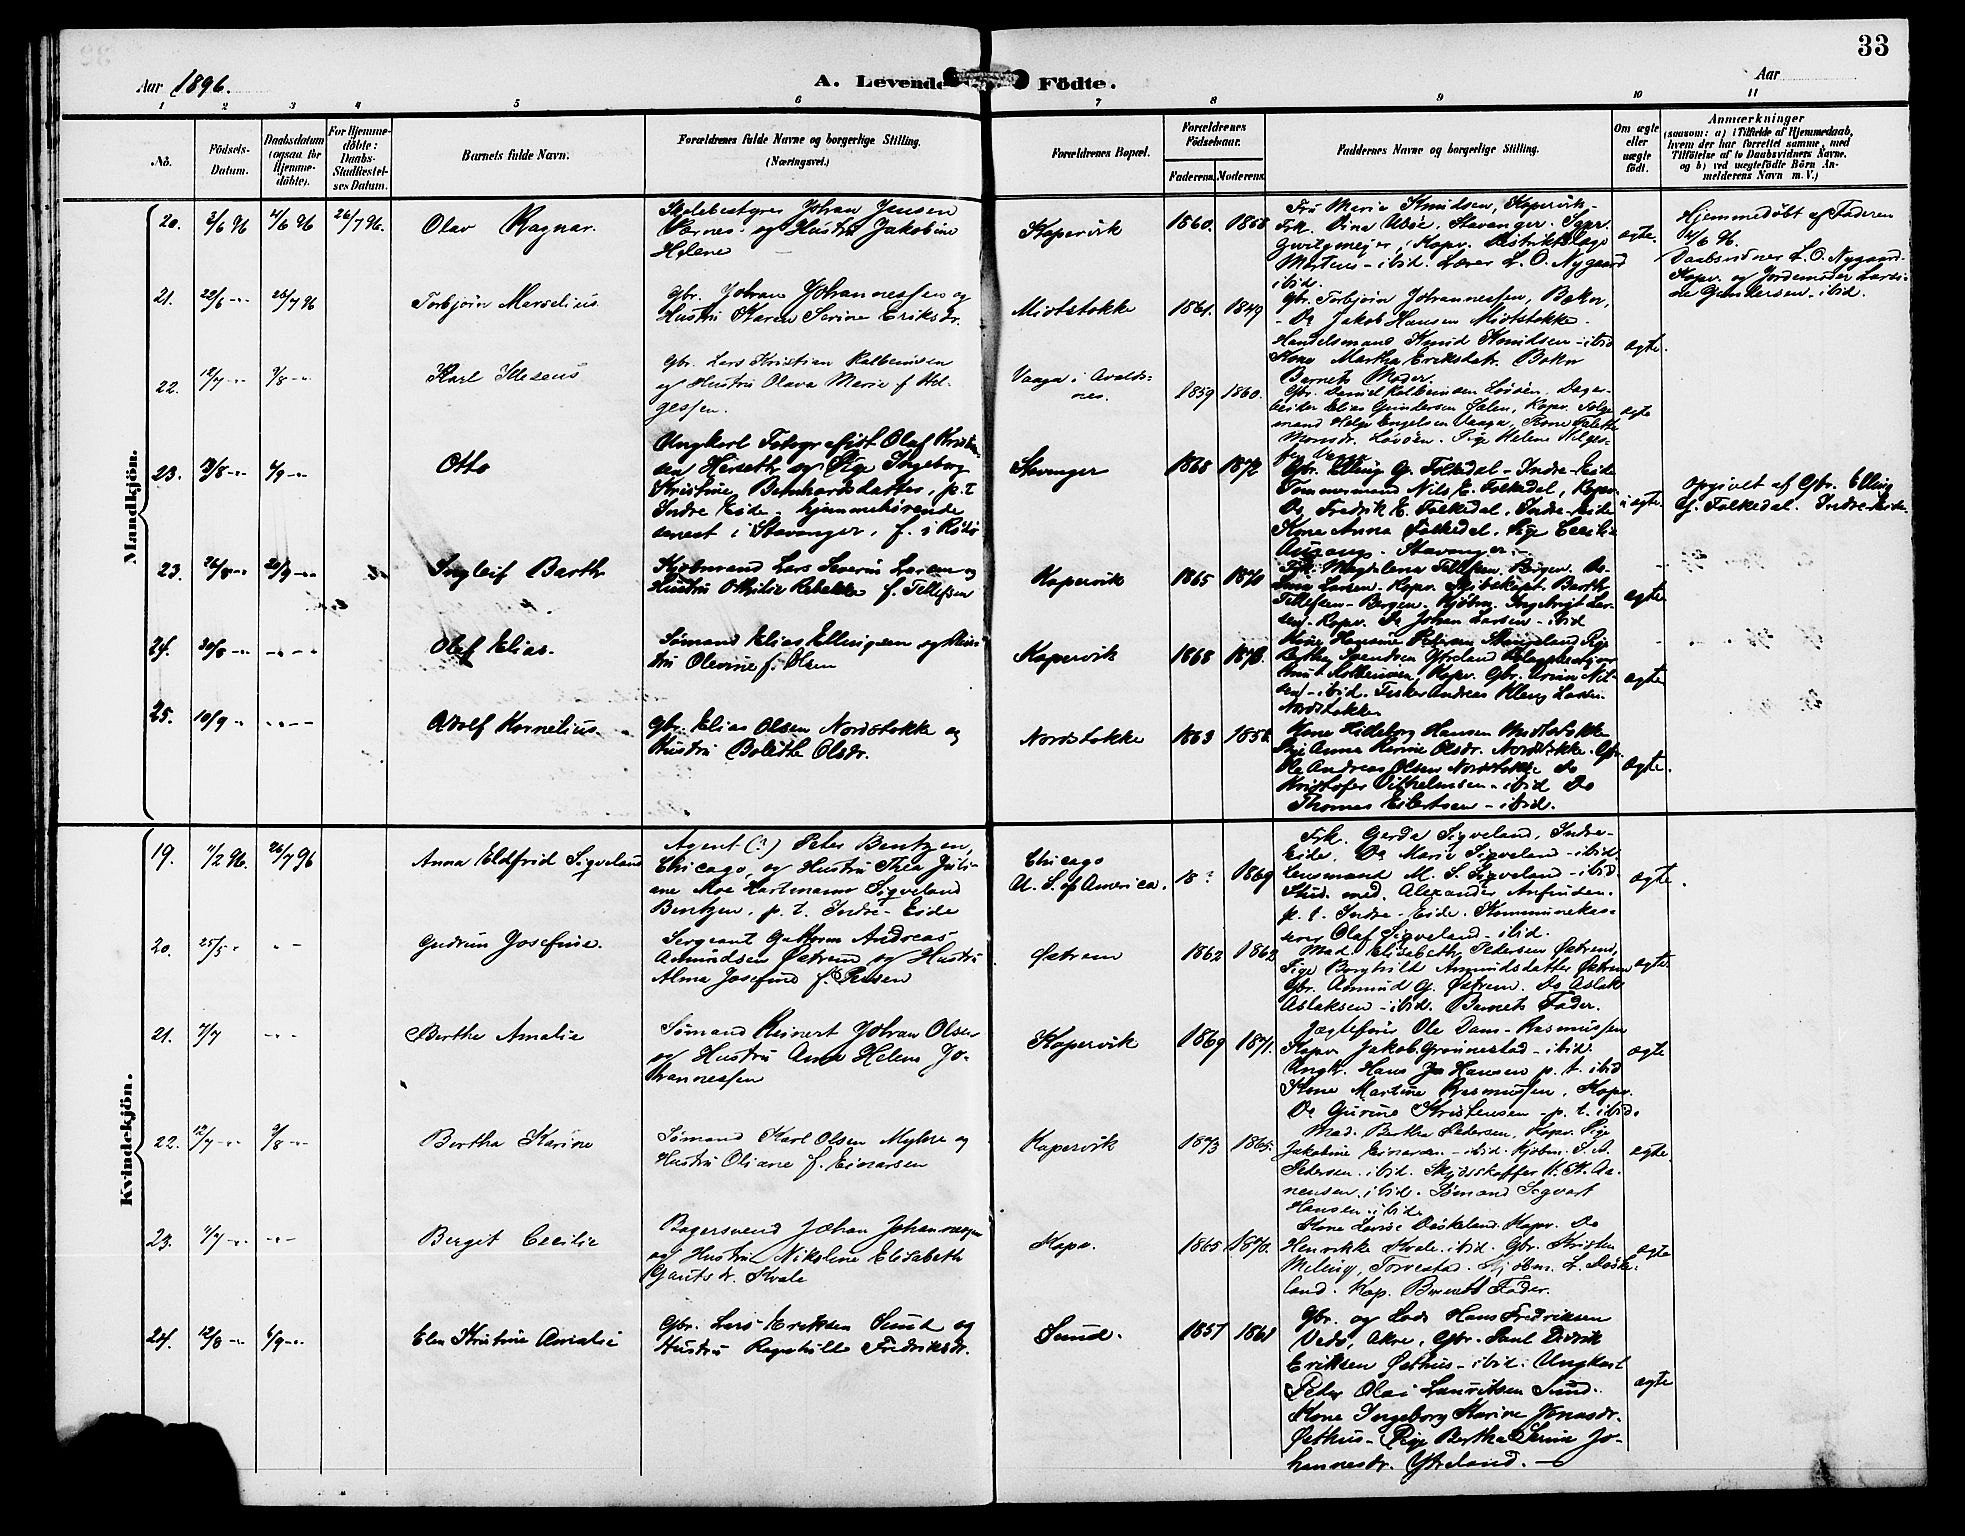 33
Aar 1896.
A. Levende Födte.
Aar
1 2 3 4 5 6 7 8 9 10 11
No.
Födsels-Datum.
Daabsdatum (ogsaa for Hjemme-döbte).
For Hjemme-döbte: Daabs-Stadfæstel-ses Datum.
Barnets fulde Navn.
Forældrenes fulde Navne og borgerlige Stilling. (Næringsvei.)
Forældrenes Bopæl.
Forældrenes Födselsaar.
Faderens. Moderens.
Faddernes Navne og borgerlige Stilling.
Om ægte eller uægte födt.
Anmærkninger
(saasom: a) i Tilfælde af Hjemmedaab,
hvem der har forrettet samme, med
Tilföielse af to Daabsvidners Navne.
og b) ved uægtefödte Börn An-
melderens Navn m. V.)
Mandkjön.
20. 2/6 96 4/6 96 26/7 96. Olav Ragnar.
Skolebestyrer Johan Jensen
Varnes og Hustru Jakobine
Helene
Kopervik 1860. 1868
Fru Marie Knudsen, Kopervik-
Frk. Dina Adsöe, Stavanger. Sagf.
Gvitzmejer, Kopv. Distriktslæge
Martens - ibid. Lærer L. O. Nygaard
ibid.
ægte.
Hjemmedøbt af Faderen
4/6 96.
Daabsvidner L. O. Nygaard-
Kopv. og Jordemoder Larsi-
ne Gundersen - ibid.
21. 22/6 -"- 26/7 96 Torbjörn Marselius
Gbr. Johan Johannessen og
Hustru Karen Serine Eriksdr.
Midtstokke 1861. 1849
Gbr. Torbjörn Johannessen, Bokn,
- Do Jakob Hansen Midtstokke.
Handelsmand Knud Knudsen - ibid
Kone Martha Eriksdatr. Bokn
Barnets Moder.
ægte.
22. 12/7 -"- 9/8 -"- Karl
Gbr. Lars Kristian Kolbeinsen
og Hustru Olava Marie f. Hel-
gessen.
Vaaga i Avalds-
nes. 1859 1860.
Gbr. Daniel Kolbeinsen Dagar-
beider Elias Gundersen Kopv.
mand Helge Engelsen Vaaga, Kone
Monsdr. Pige Helene Helges-
ægte
23. 13/8 -"- 6/9 -"- Otto
Ungkarl Fotografist Olaf Kristian-
sen Herseth og Pige Ingeborg
Kristine Bernhardsdatter, p. t.
Indre Eide - hjemmehørende
senest i Stavanger, f. i
Stavanger 1868 1872
Gbr. Elling G. Folkedal - Indre-Eide
Tømmermand Nils E. Folkedal, Kopv.
Do Fredrik E. Folkedal, Indre-Eide
Kone Anna Folkedal, Pige Cecilie
Stavanger.
uægte.
Opgivet af Gbr. Elling
G. Folkedal. Indre-Eide.
23. 26/8 -"- 20/9 -"- Ingleif Barth
Kjøbmand Lars Severin Larsen og
Hustru Othilie Rebekka f. Tellefsen
Kopervik 1865 1870
Frk. Magdalena Tellefsen, Bergen. Do
Lina Larsen - Kopv. Skibskapt. Barth
Tellefsen - Bergen. Kjøbm. Ingebrigt Lar-
sen - Kopv. Do Johan Larsen - ibid
ægte
24. 30/8 -"- -"- -"- Olaf Elias.
Sømand Elias Ellingsen og Hus-
tru Olevine f. Olsen
Kopervik 1868 1873.
Kone Hansine Petersen Skeiseland Pige
Bertha Ytreland
Knut Kopv. Gbr. Nil-
sen - ibid. Fisker Andreas
Nordstokke
ægte
25. 10/9 -"- -"- -"- Adolf Kornelius
Gbr. Elias Olsen Nordstokke og
Hustru Bolette Olsdr.
Nordstokke 1863 1856
Kone Hilleborg Hansen Midtstokke
Pige Anna Olsdr. Nordstokke. Gbr.
Ole Andreas Olsen Nordstokke Do
Kristofer Vilhelmsen - ibid Do
Thomas Eilertsen - ibid.
ægte.
Kvindekjön.
19. 11/2 96. 26/7 96 Anna Eldfrid Sigveland
Agent (?) Peter Bentzen,
Chicago, og Hustru Thea Juli-
ane Moe Hartmann Sigveland
Bentzen, p. t. Indre-Eide
Chicago
U. S. of America. 18? 1869
Frk. Gerda Sigveland, Indre-
Eide, Do Marie Sigveland - ibid.
Lensmand M. S. Sigveland - ibid
Stud. med. Alexander Anfindsen.
p. t. Indre-Eide. Kommunekas-
serer Olaf Sigveland - ibid.
ægte.
20. 25/5 -"- -"- Gudrun Josefine.
Sergeant Guttorm Andreas
Amundsen Østrem og Hustru
Alma Josefine f. Petersen
Østrem 1862 1862
Mad. Elisabeth Pedersen Østrem,
Pige Borghild Amundsdatter Østrem
Gbr. Amund G. Østrem. Do Aslak
Aslaksen - ibid. Barnets Fader.
ægte.
21. 7/7 -"- Bertha Amalie
Sømand Reinert Johan Olsen
og Hustru Anna Helene Jo-
hannessen
Kopervik 1869 1871.
Jagtefører Ole Dam - Rasmussen
Kopv. Jakob Grønnestad - ibid.
Ungk. Hans Js Hansen p. t. ibid
Kone Martine Rasmussen, Kopv.
Do Gurine Kristensen - p. t. ibid.
ægte
22. 12/7 -"- 9/8 -"- Bertha Karine
Sømand Karl Olsen Myhre og
Hustru Oliane f. Einarsen
Kopervik 1873 1865.
Mad. Bertha Pedersen, Kopv. Pige
Jakobine Einarsen - ibid. Kjøbm. S. A.
Pedersen - ibid. Skydsskaffer Aa-
nensen, ibid. Sømand Sigvart
Hansen - ibid.
ægte.
23. 11/7 -"- -"- Berget Cecilie
Bagersvend Johan Johannessen
og Hustru Nikoline Elisabeth
Gautsdr. Kvale
Kopv. 1865 1870.
Kone Lovise Døskeland. Kopv. Do
Henrikke Kvale. ibid. Gbr. Kristen
Meling, Torvestad. Kjøbm. L. Døske-
land. Kop. Barnets Fader.
ægte
24. 12/8 -"- 6/9 -"- Elen Kristine Amalie
Gbr. Lars Eriksen Sund og
Hustru Ragnhille Fredriksdr.
Sund. 1857 1861
Gbr. og Lods Hans Fredriksen
Vedø, Akre, Gbr. Paul Didrik
Eriksen Østhus - ibid. Ungkarl
Peter Olai Lauritsen Sund.
Kone Ingeborg Karine Jonasdr.
Østhus - Pige Bertha Serine Jo-
hannesdr. Ytreland.
ægte